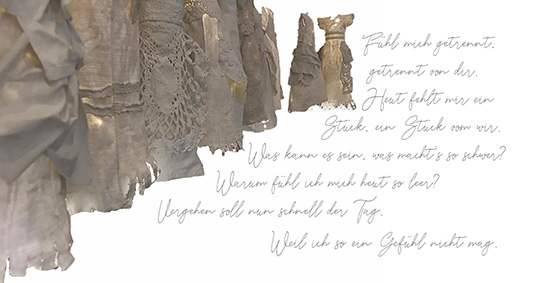 Fühl mich getrennt,
getrennt von dir.
Heut fehlt mir ein
Stück, ein Stück vom wir.
Was kann es sein, was macht's so schwer?
Warum fühl ich mich heut so leer?
Vergehen soll nun schnell der Tag.
Weil ich so ein Gefühl nicht mag.